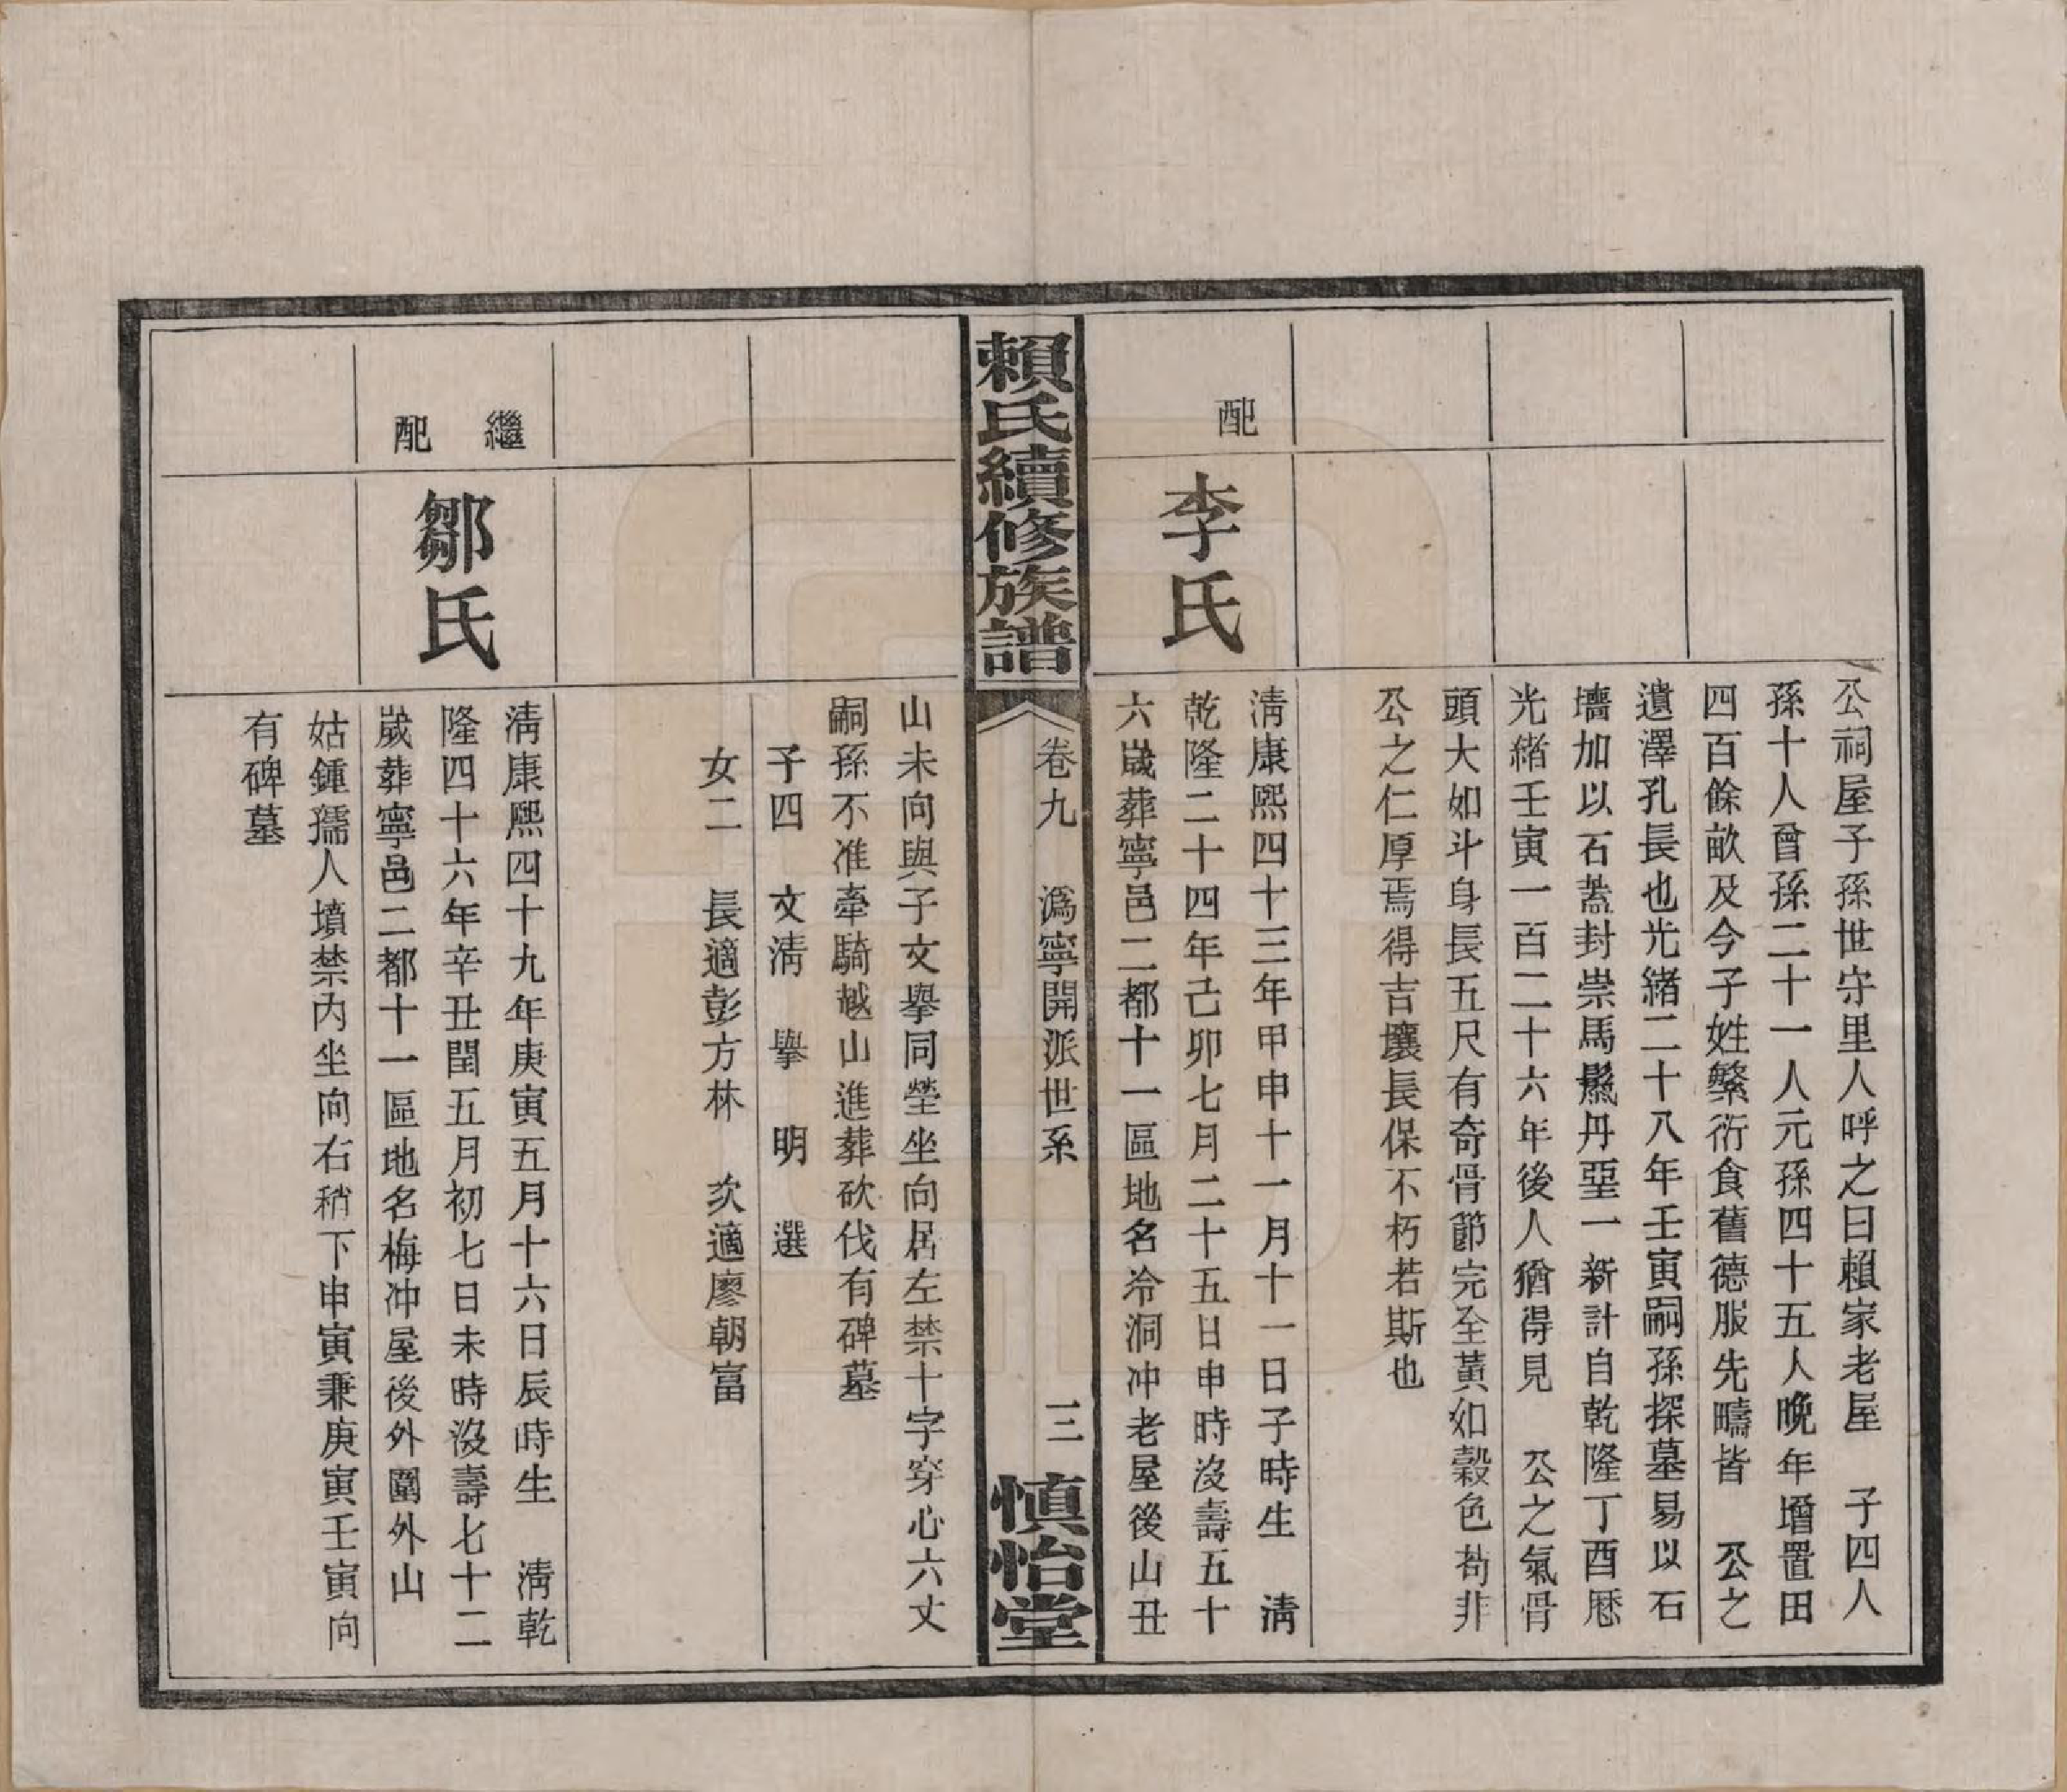 公祠屋子孫世守里人呼之曰賴家老屋　子四人
孫十人曾孫二十一人元孫四十五人晚年增置田
四百餘畝及今子姓繁衍食舊德服先疇皆　公之
遺澤孔長也光緒二十八年壬寅嗣孫探墓易以石
墻加以石蓋封崇馬鬣丹堊一新計自乾隆丁酉歷
光緒壬寅一百二十六年後人猶得見　公之氣骨
頭大如斗身長五尺有奇骨節完全黃如穀色苟非
公之仁厚焉得吉壤長保不朽若斯也
配
李氏
清康熙四十三年甲申十一月十一日子時生　清
乾隆二十四年己卯七月二十五日申時沒壽五十
六歲葬寧邑二都十一區地名冷洞冲老屋後山丑
賴氏續修族譜
卷九　溈寧開派世系
三
慎怡堂
山未向與子文擧同塋坐向居左禁十字穿心六丈
嗣孫不准牽騎越山進葬砍伐有碑墓
子四　文清　擧　明　選
女二　長適彭方林　次適廖朝富
繼
配
鄒氏
清康熙四十九年庚寅五月十六日辰時生　清乾
隆四十六年辛丑閏五月初七日未時沒壽七十二
歲葬寧邑二都十一區地名梅冲屋後外圍外山
姑鍾孺人墳禁內坐向右稍下申寅兼庚寅壬寅向
有碑墓